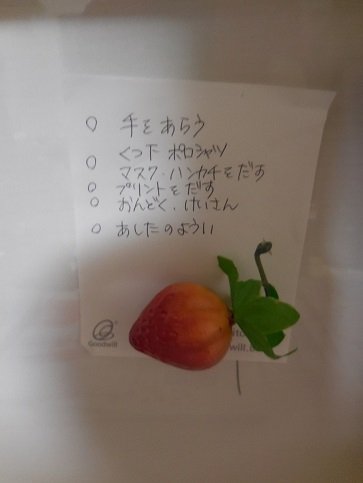 ○ 手をあらう
○ くつ下 ポロシャツ
マスク・ハンカチをだす
○ プリントをだす
○ おんどく・けいさん
○ あしたのようい
Goodwill
will.b